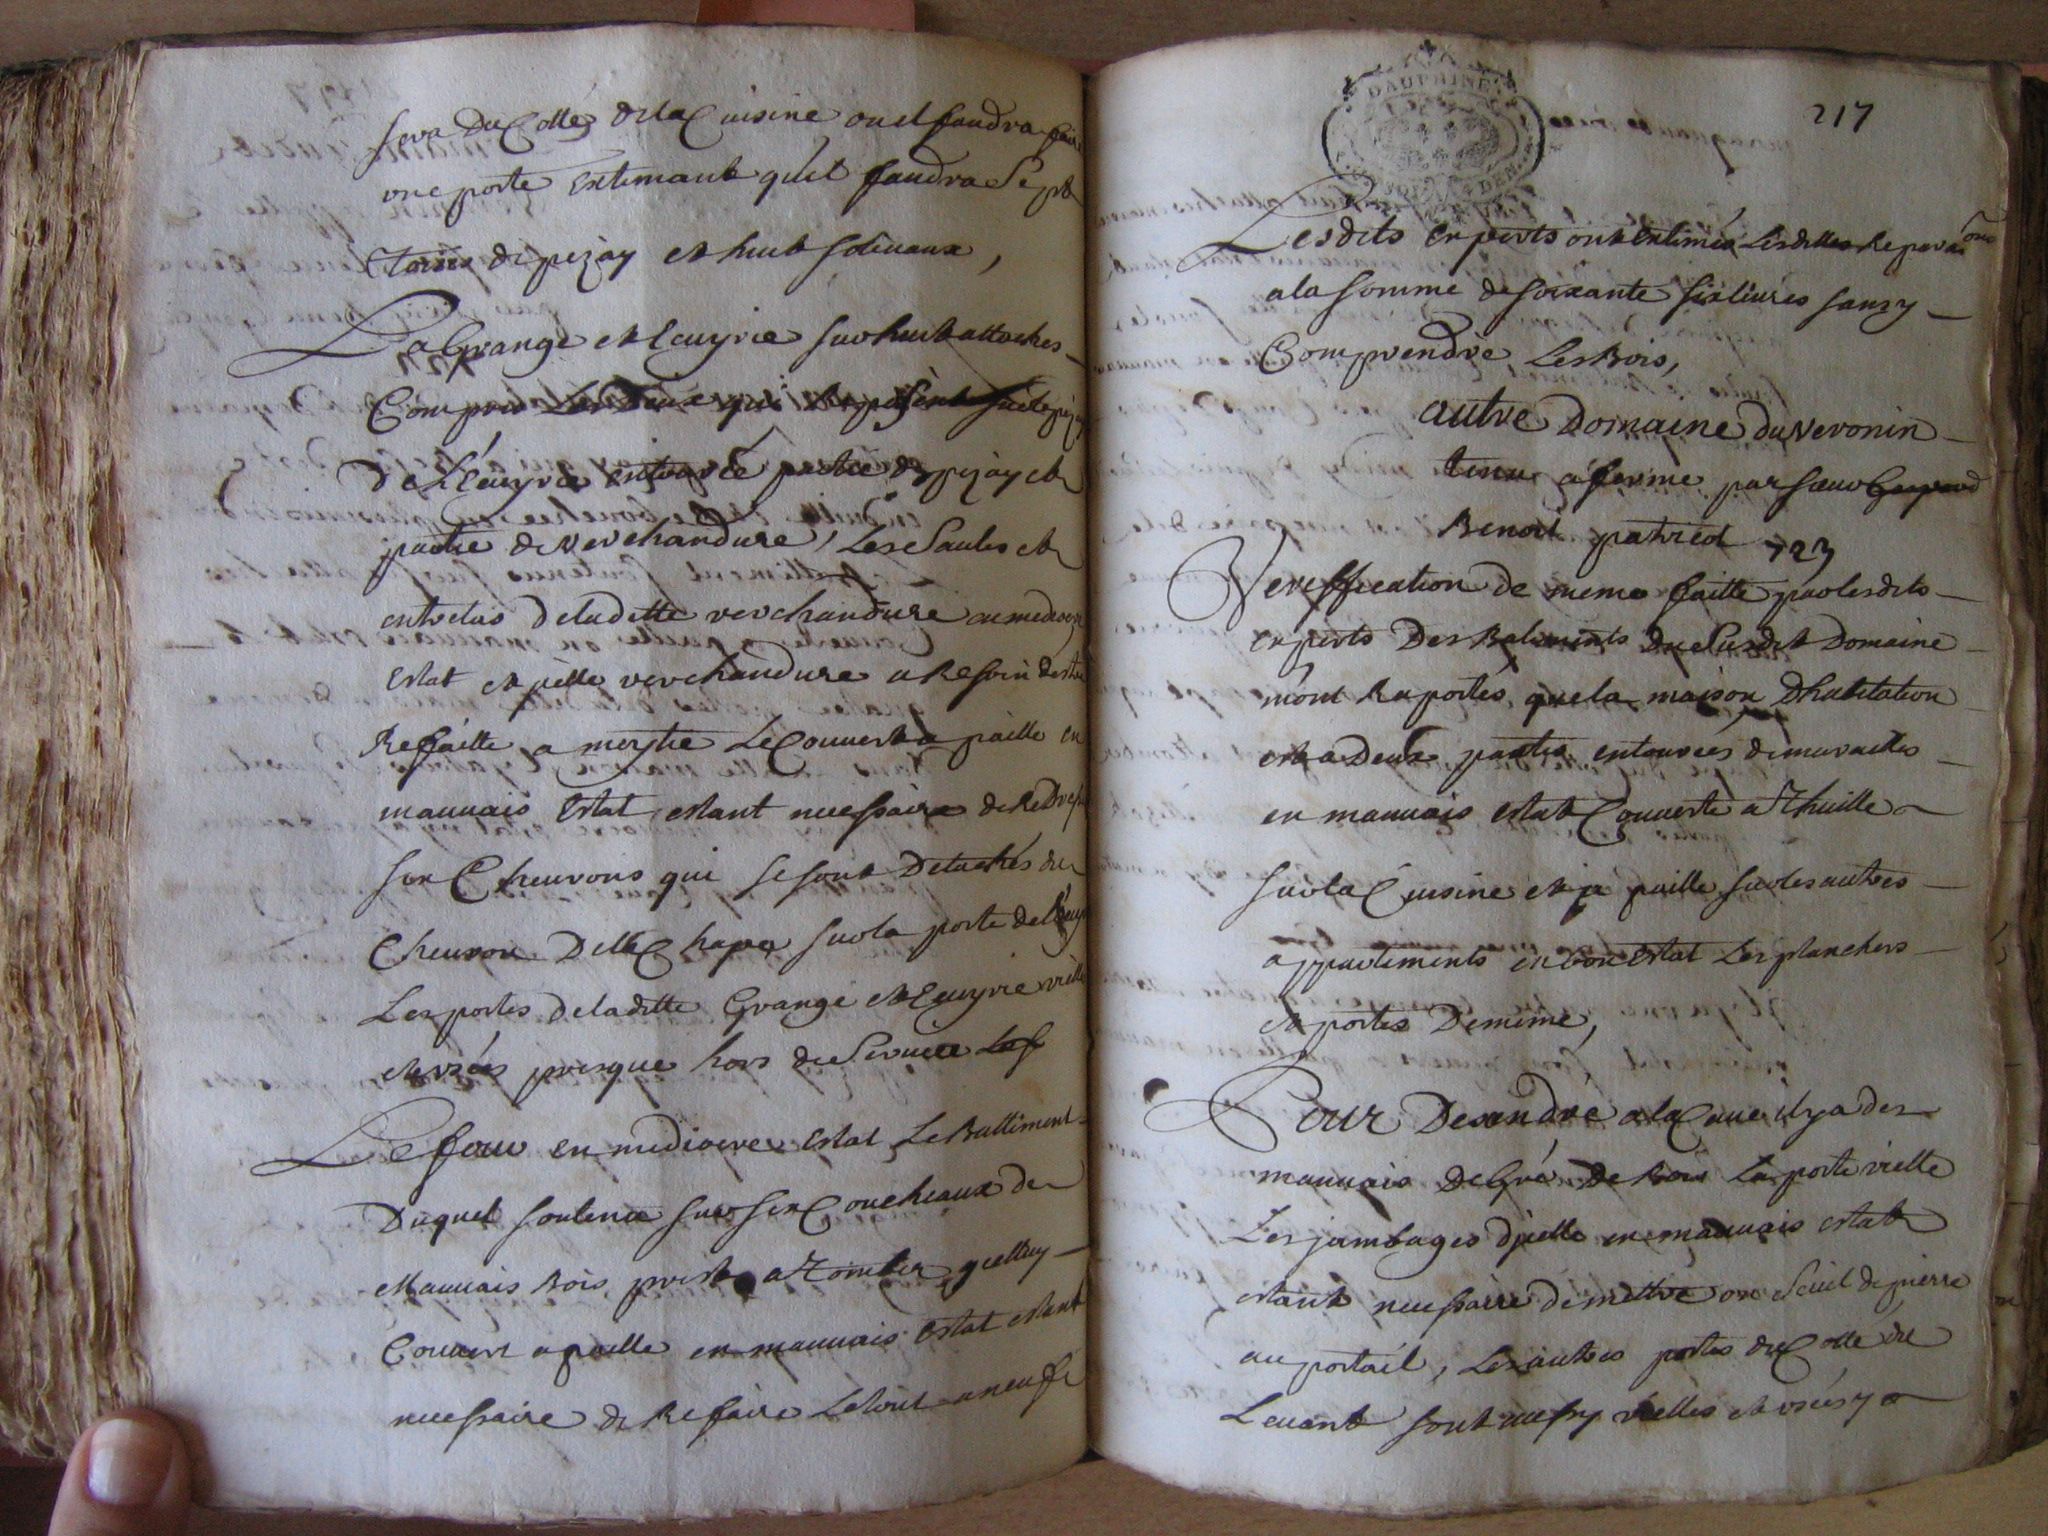 sera du Cotté de la Cuisine ou il faudra faire
une porte Estimant qu'il faudra Sept
Toises de pizay et huit soliveaux,
La Grange et Ecuyrie sur huit attaches
Compris Les deux qui Reposent sur le pizay
De L'Ecuyrie entourée partie de pizay et
partie de verchandure, Les Saules et
entrelas de laditte verchandure en mediocre
Estat et jcelle verchandure a Besoin destre
Reffaitte a moytie Le Couvert a paille en
mauvais Estat estant necessaire de Redresser
six Cheuvrons qui se sont Detachés du
Cheuvron De la Chape sur la porte de l'Ecuyrie
Les portes de laditte Grange et Ecuyrie vielles
et usées presque hors de Service
Le four en mediocre Estat Le Battiment
Duquel soutenu sur six Coucheaux de
Mauvais Bois prest a Tomber jcelluy
Couvert a paille en mauvais Estat estant
necessaire de Refaire Le tout a neuf
DAUPHINE
217
Lesdits Experts ont Estimés Lesdittes Reparaõns
a la somme de soixante six livres sans y
Comprendre Les Bois,
autre Domaine du Veronin
tenu a ferme par sieur
Benoit patricot
723
Vereffication de meme faitte par lesdits
experts Des Batiments du Susdit Domaine
m'ont Raportés, que la maison D'habitation
est a Deux parties entourées de murailles
en mauvais estat Couverte a Thuille
sur la Cuisine et a paille sur les autres
appartements en bon Estat Les planchers
et portes De meme,
Pour Desendre a la Cave il y a des
mauvais Degré de Bois La porte vielle
Les jambages d'jcelle en mauvais estat
estant necessaire de mettre un Seuil de pierre
au portail, Les autres portes du Cotté du
Levant sont aussy vielles et usées